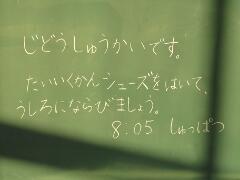 じどうしゅうかいです。
たいいくかんシューズをはいて、
うしろにならびましょう。
8:05 しゅっぱつ